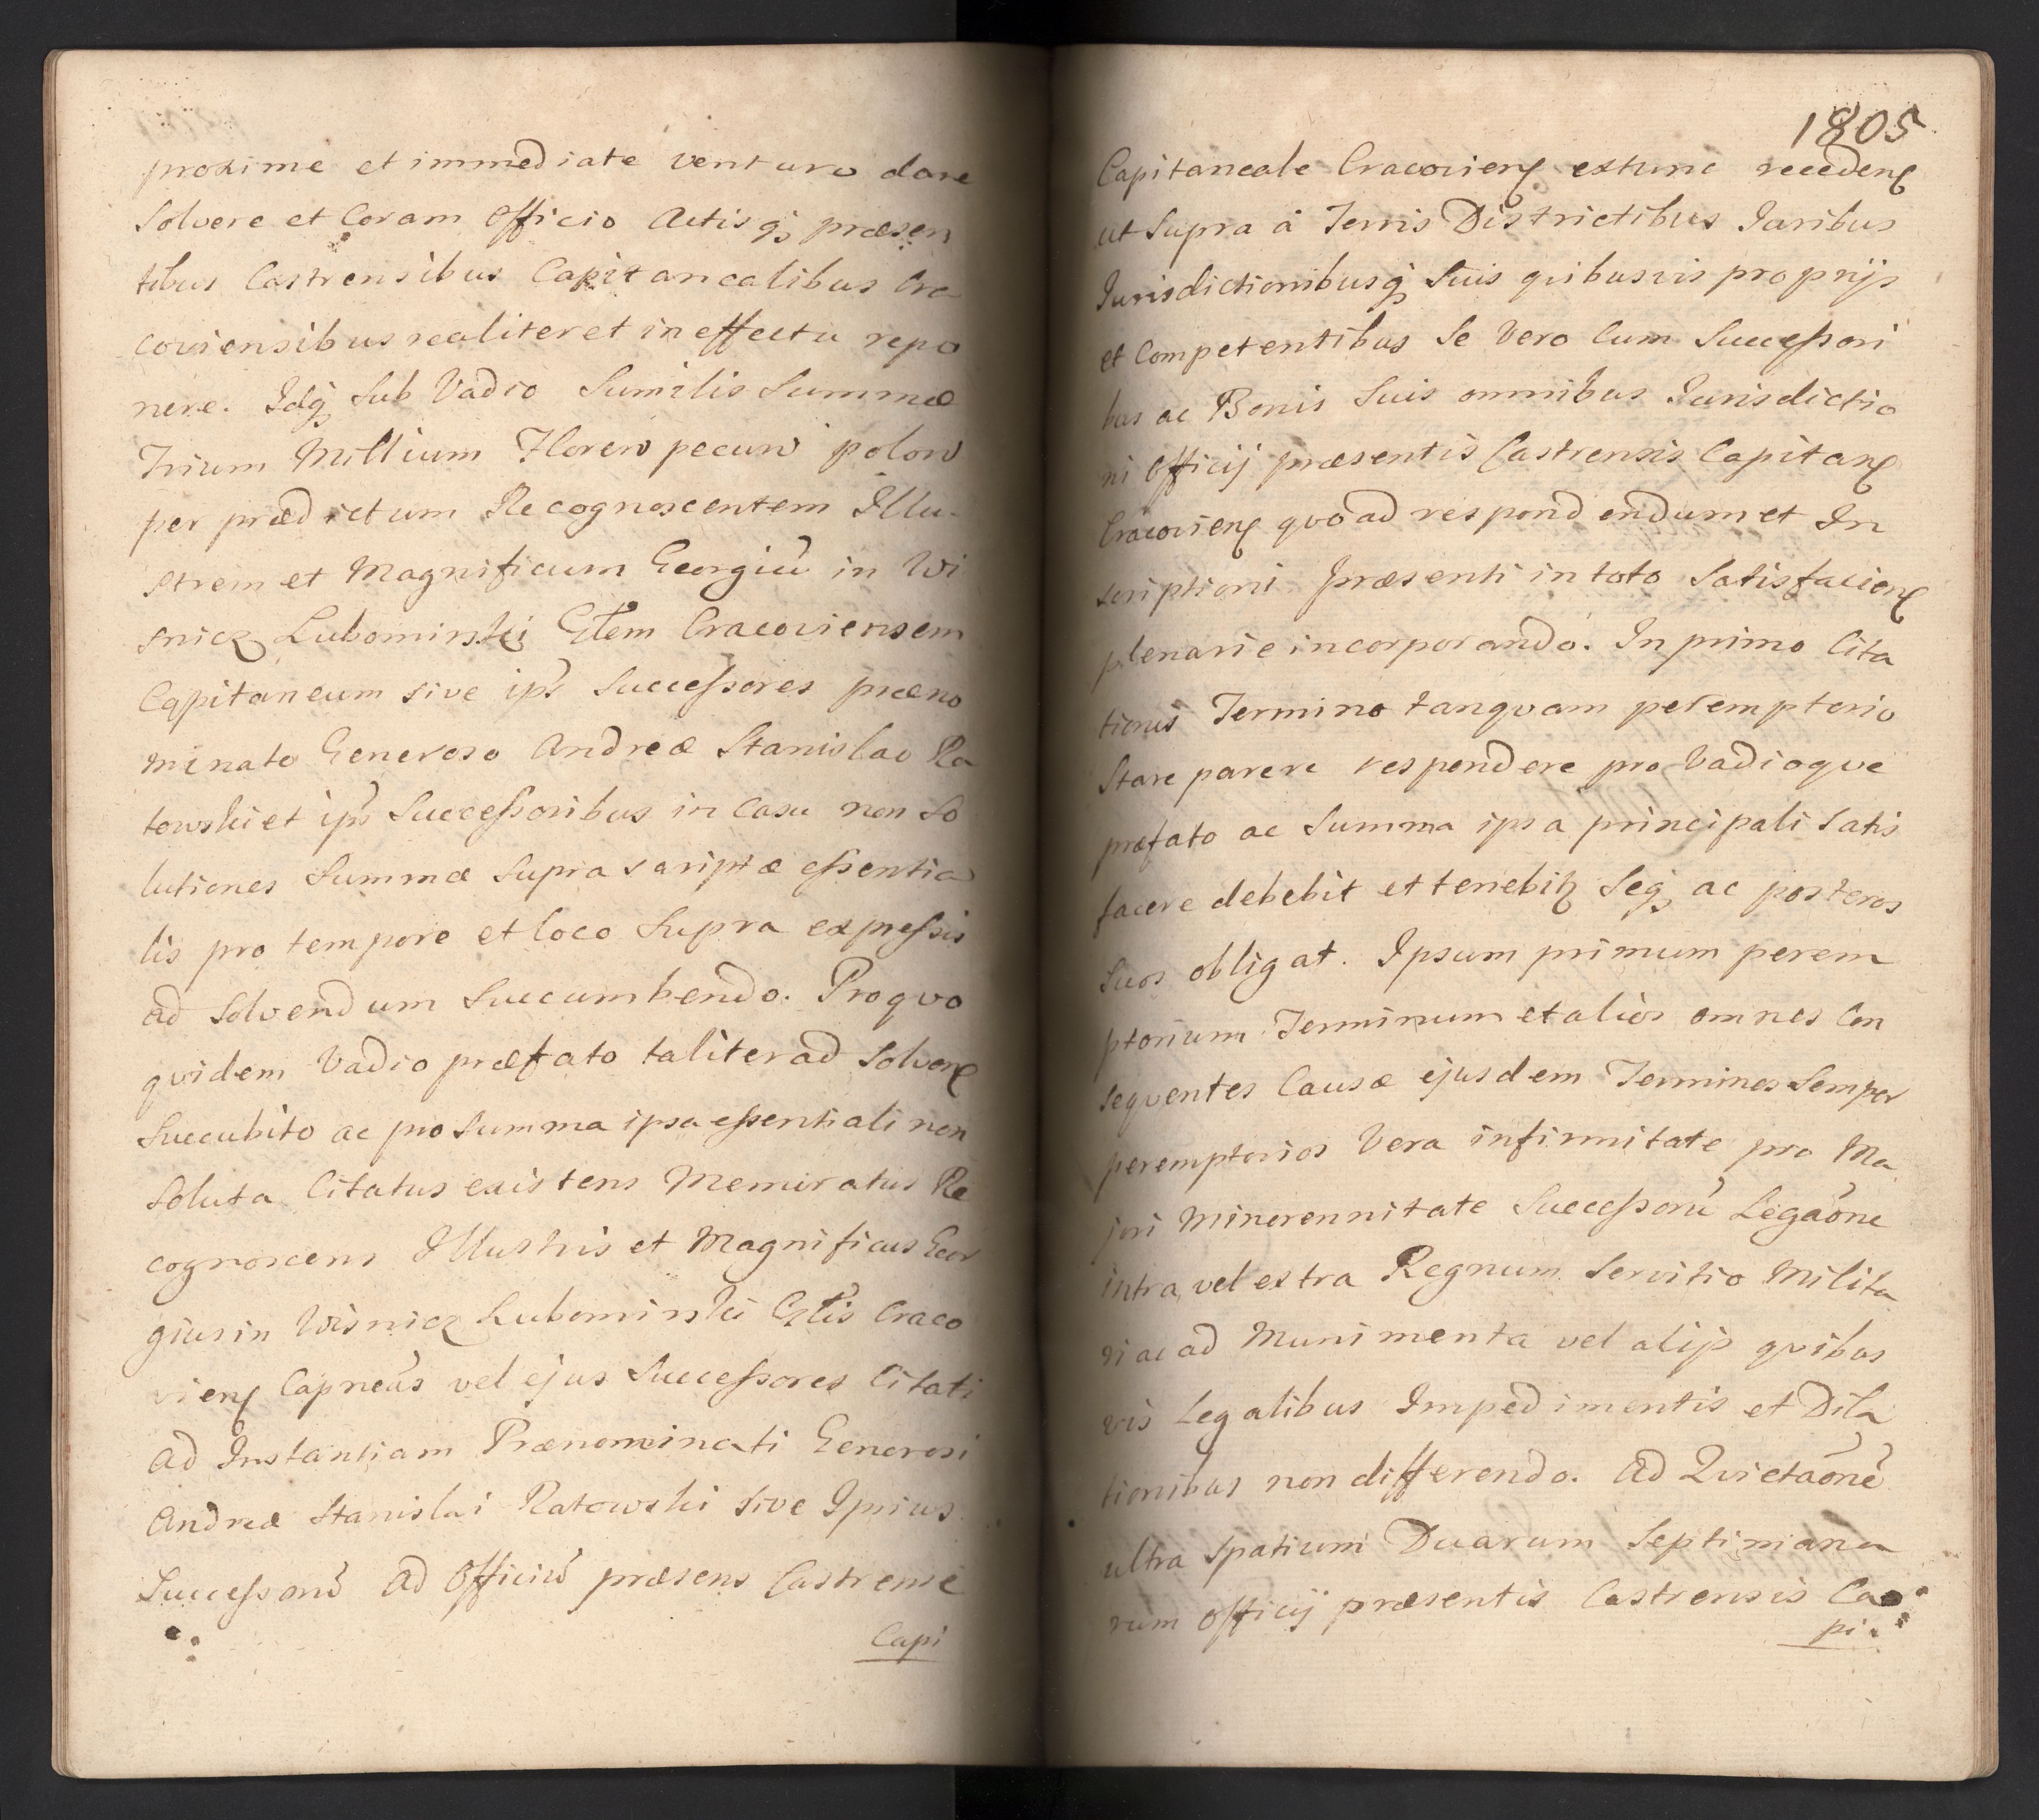 proxime et immediate venturo dare
Solvere et Coram Officio Actisq; præsen
tibus Castrensibus Capitanealibus Cra
coviensibus realiter et in effectu repo
nere. Idq; Sub Vadio Sumilis Summæ
Trium Millium Floren pecun polon
per prædictum Recognoscentem Illu-
strem et Magnificum Georgiu in Wi
snicz Lubomirski Gtlem Cracoviensem
Capitaneum sive ips Successores præno
minato Generoso Andreæ Stanislao Ra
towski et ips Successoribus in Casu non So
lutiones Summæ Supra scriptæ essentia
lis pro tempore et loco Supra expressis
ad Solvendum Succumbendo. Pro quo
qvidem Vadio præfato taliter ad Solven
Succubito ac pro Summa ipsa essentiali non
Soluta Citatus existens Memoratus Re
cognoscens Illustris et Magnificus Geor
gius in Wisnicz Lubomirski Gtlis Craco
vien Capneus vel ejus Successores Citati
ad Instantiam Prænominati Generosi
Andreæ Stanislai Ratowski sive Ipsius
Successorū ad Officiū præsens Castrense
Capi
1805
Capitaneale Cracovien extunc receden
ut Supra à Terris Districtibus Iuribus
Iurisdictionibusq; Suis qvibusvis proprijs
et Competentibus Se Vero Cum Successori
bus ac Bonis Suis omnibus Iurisdictio
ni Officij præsentis Castrensis Capitan
Cracovien qvoad respondendum et In
scriptioni Præsenti in toto Satisfacien
plenarie incorporando. In primo Cita
tionis Termino tanqvam peremptorio
Stare parere respondere pro Vadioqve
præfato ac Summa ipsa principali Satis
facere debebit et tenebit Seq; ac posteros
Suos obligat. Ipsum primum perem
ptorium Terminum et alios omnes Con
seqventes Causæ ejusdem Terminos Semper
peremptorios Vera infirmitate pro Ma
jori Minorennitate Successorū Legaōne
intra vel extra Regnum Servitio Milita
ri ac ad Munimenta vel alijs qvibus
vis Legalibus Impedimentis et Dila
tionibus non differendo. Ad Qvietaōnē
ultra Spatium Duarum Septimana
rum Officij præsentis Castrensis Ca
pi